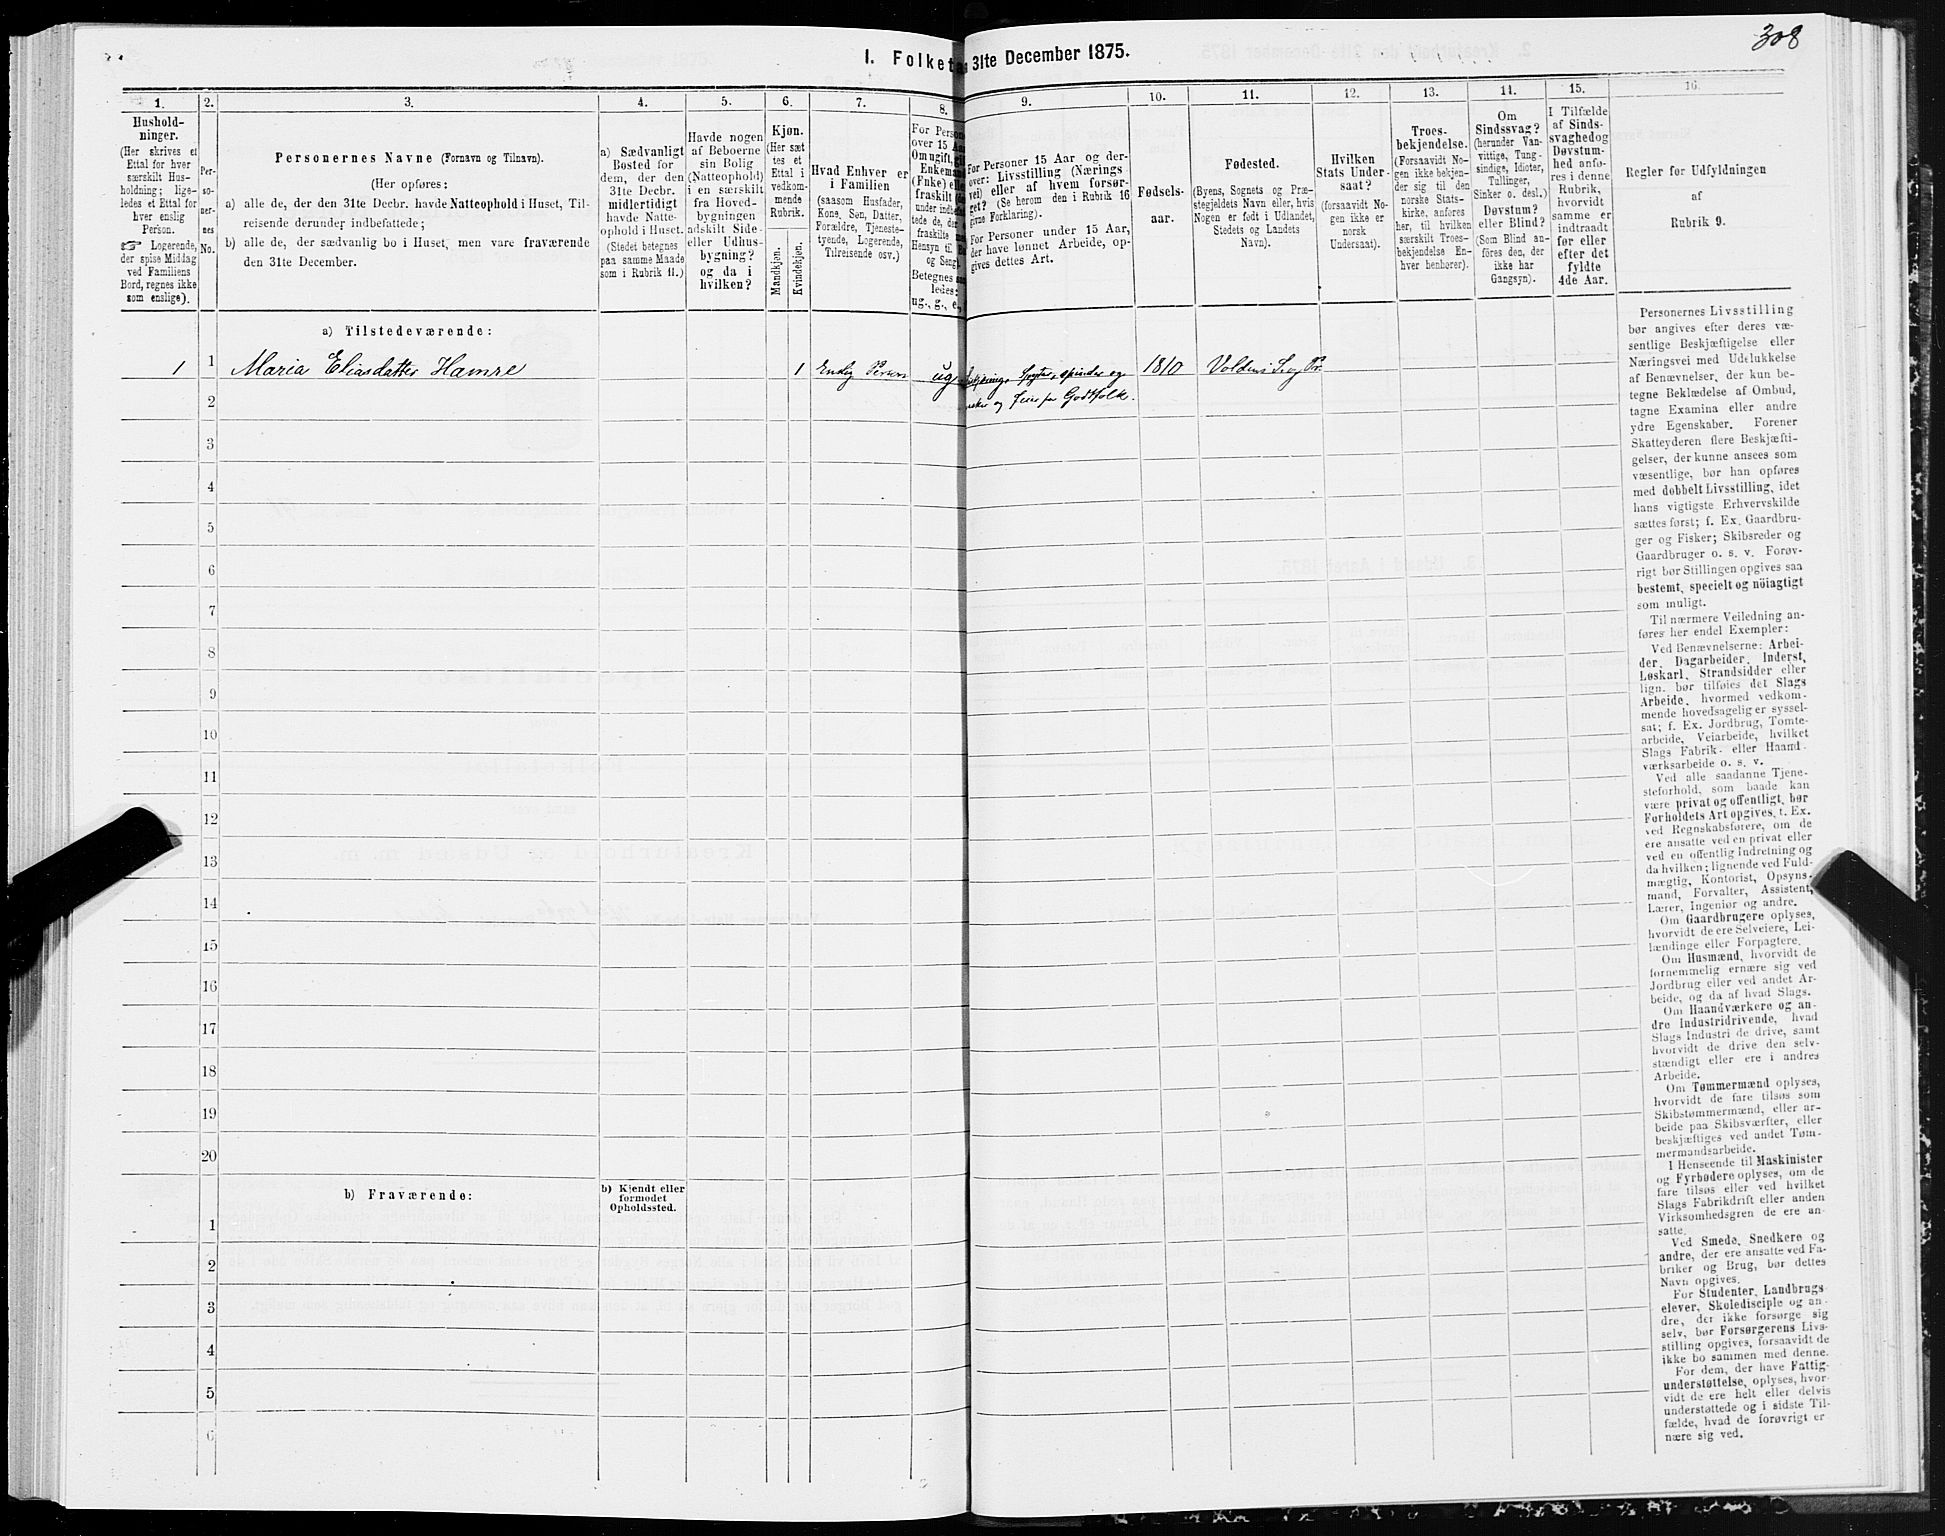 308
I. Folketa 31te December 1875.
1.
2.
3.
4.
5.
6.
7.
8.
9.
10.
11.
12.
13.
14.
15.
16.
Hushold-
ninger.
(Her skrives et
Ettal for hver
særskilt Hus-
holdning; lige-
ledes et Ettal for
hver enslig
Person.
☞ Logerende,
der spise Middag
ved Familiens
Bord, regnes ikke
som enslige).
Per-
so-
ner-
nes
No.
Personernes Navne (Fornavn og Tilnavn).
(Her opføres:
a) alle de, der den 31te Decbr. havde Natteophold i Huset, Til-
reisende derunder indbefattede;
b) alle de, der sædvanlig bo i Huset, men vare fraværende
den 31te December.
a) Sædvanligt
Bosted for
dem, der den
31te Decbr.
midlertidigt
havde Natte-
ophold i Huset.
(Stedet betegnes
paa samme Maade
som i Rubrik 11.)
Havde nogen
af Beboerne
sin Bolig
(Natteophold)
i en særskilt
fra Hoved-
bygningen
adskilt Side-
eller Udhus-
bygning?
og da i
hvilken?
Kjøn.
(Her sæt
tes et
Ettal i
vedkom-
mende
Rubrik.
Mandkjøn.
Kvindekjøn.
Hvad Enhver er
i Familien
(saasom Husfader,
Kone, Søn, Datter,
Forældre, Tjeneste-
tyende, Logerende,
Tilreisende osv.)
For Person
over 15 Aa
Om ugift, gif
Enkemand
(Enke) elle
fraskilt (
under indbefat
tede de, der
fraskilte
Hensyn til
og Seng).
Betegnes saa
ledes:
ug., g., e.,
For Personer 15 Aar og der-
over: Livsstilling (Nærings
vei) eller af hvem forsør-
get? (Se herom den i Rubrik 16
givne Forklaring).
For Personer under 15 Aar,
der have lønnet Arbeide, op-
gives dettes Art.
Fødsels-
aar.
Fødested.
(Byens, Sognets og Præ-
stegjeldets Navn eller, hvis
Nogen er født i Udlandet,
Stedets og Landets
Navn).
Hvilken
Stats Under-
saat?
(forsaavidt No-
gen ikke er
norsk
Undersaat).
Troes-
bekjendelse.
(Forsaavidt No-
gen ikke bekjen-
der sig til den
norske Stats-
kirke, anføres
her, til hvilken
særskilt Troes-
bekjendelse En-
hver henhører).
Om
Sindssvag?
(herunder Van-
vittige, Tung-
sindige, Idioter,
Tullinger,
Sinker o. desl.)
Døvstum?
eller Blind?
(Som Blind an-
føres den, der
ikke har
Gangsyn).
I Tilfælde
af Sinds-
svaghed og
Døvstum-
hed anfø-
res i denne
Rubrik,
hvorvidt
samme er
indtraadt
før eller
efter det
fyldte
4de Aar.
Regler for Udfyldningen
af
Rubrik 9.
a) Tilstedeværende:
1 1 Maria Eliasdatter Hamre 1 Enslig Person ug spinder og 1810 Voldens S. og Pr.
2 og for Godtfolk.
3
4
5
6
7
8
9
10
11
12
13
14
15
16
17
18
19
20
b) Fraværende:
b) Kjendt eller
formodet
Opholdssted.
1
2
3
4
5
6
Personernes Livsstilling
bør angives efter deres væ-
sentlige Beskjæftigelse eller
Næringsvei med Udelukkelse
af Benævnelser, der kun be-
tegne Beklædelse af Ombud,
tagne Examina eller andre
ydre Egenskaber. Forener
Skatteyderen flere Beskjæfti-
gelser, der kunne ansees som
væsentlige, bør han opføres
med dobbelt Livsstilling, idet
hans vigtigste Erhvervskilde
sættes først; f. Ex. Gaardbru-
ger og Fisker; Skibsreder og
Gaardbruger o. s. v. Forøv-
rigt bør Stillingen opgives saa
bestemt, specielt og nöiagtigt
som muligt.
Til nærmere Veiledning an-
føres her endel Exempler:
Ved Benævnelserne: Arbei-
der, Dagarbeider, Inderst,
Løskarl, Strandsidder eller
lign. bør tilføies det Slags
Arbeide, hvormed vedkom-
mende hovedsagelig er syssel-
sat; f. Ex. Jordbrug, Tomte-
arbeide, Veiarbeide, hvilket
Slags Fabrik- eller Haand-
værksarbeide o. s. v.
Ved alle saadanne Tjene-
steforhold, som baade kan
være privat og offentligt, bør
Forholdets Art opgives, f. Ex.
ved Regnskabsførere, om de
ere ansatte ved en privat eller
ved en offentlig Indretning og
da hvilken; lignende ved Fuld-
mægtig, Kontorist, Opsyns-
mand, Forvalter, Assistent,
Lærer, Ingeniør og andre.
Om Gaardbrugere oplyses,
hvorvidt de ere Selveiere, Lei-
lændinge eller Forpagtere.
Om Husmænd, hvorvidt de
fornemmelig ernære sig ved
Jordbrug eller ved andet Ar-
beide, og da af hvad Slags.
Om Haandværkere og an-
dre Industridrivende, hvad
Slags Industri de drive, samt
hvorvidt de drive den selv-
stændigt eller ere i andres
Arbeide.
Om Tømmermænd oplyses,
hvorvidt de fare tilsøs som
Skibstømmermænd, eller ar-
beide paa Skibsværfter, eller
beskjæftiges ved andet Tøm-
mermandsarbeide.
I Henseende til Maskinister
og Fyrbødere oplyses, om de
fare tilsøs eller ved hvilket
Slags Fabrikdrift eller anden
Virksomhedsgren de ere an-
satte.
Ved Smede, Snedkere og
andre, der ere ansatte ved Fa-
briker og Brug, bør dettes
Navn opgives.
For Studenter, Landbrugs
elever, Skoledisciple og an-
dre, der ikke forsørge sig
selv, bør Forsørgerens Livs-
stilling opgives, forsaavidt de
ikke bo sammen med denne.
For dem, der have Fattig-
understøttelse, oplyses, hvor-
vidt de ere helt eller delvis
understøttede og i sidste Til-
fælde, hvad de forøvrigt er
nære sig ved.